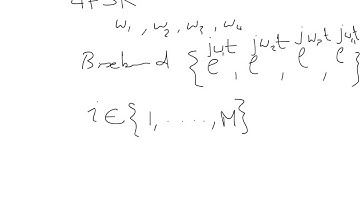 4FSK
w₁, w₂, w₃, w₄
Baseband {e^{jw₁t}, e^{jw₂t}, e^{jw₃t}, e^{jw₄t}}
i∈{1, ....., M}